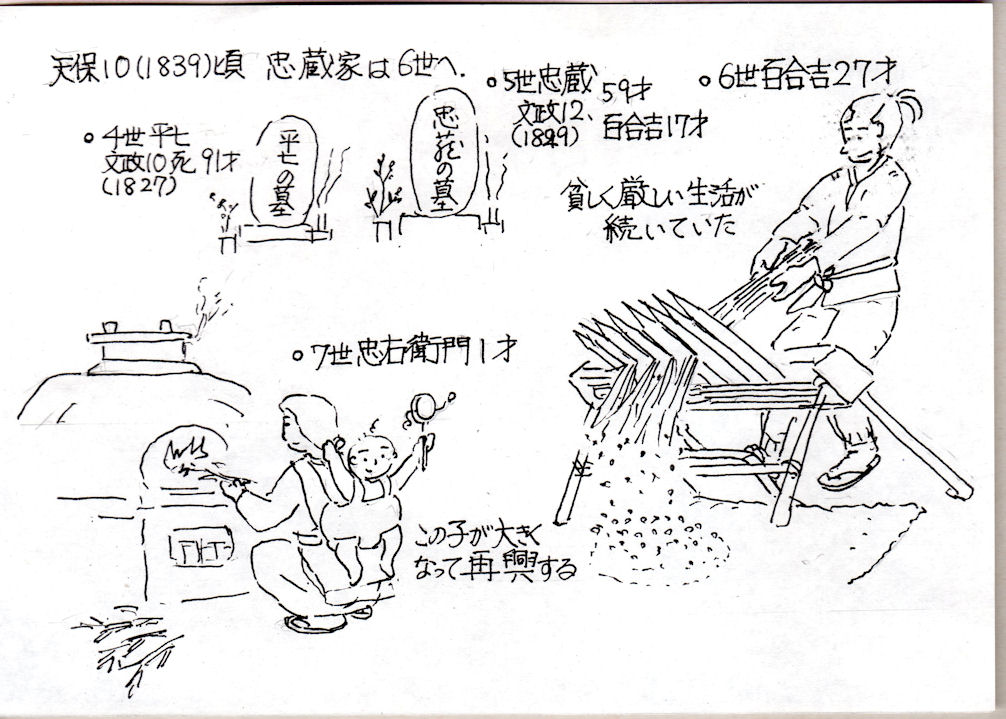 天保10(1839)頃 忠蔵家は6世へ.
○4世平七
文政10死 91才
(1827)
平七の墓
忠蔵の墓
○5世忠蔵 59才
文政12、百合吉17才
(1829)
○6世百合吉27才
貧しく厳しい生活が
続いていた
○7世忠右衛門1才
この子が大きく
なって再興する